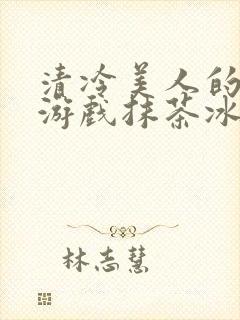 清冷美人的
游戏抹茶冰
林志慧